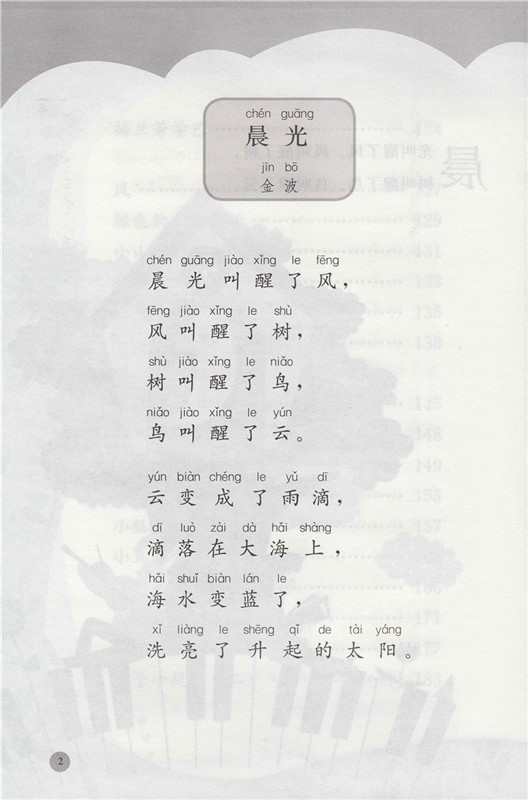 chén guāng
晨光
jīn bō
金波
chén guāng jiào xǐng le fēng
晨光叫醒了风，
fēng jiào xǐng le shù
风叫醒了树，
shù jiào xǐng le niǎo
树叫醒了鸟，
niǎo jiào xǐng le yún
鸟叫醒了云。
yún biàn chéng le yǔ dī
云变成了雨滴，
dī luò zài dà hǎi shàng
滴落在大海上，
hǎi shuǐ biàn lán le
海水变蓝了，
xǐ liàng le shēng qǐ de tài yáng
洗亮了升起的太阳。
2